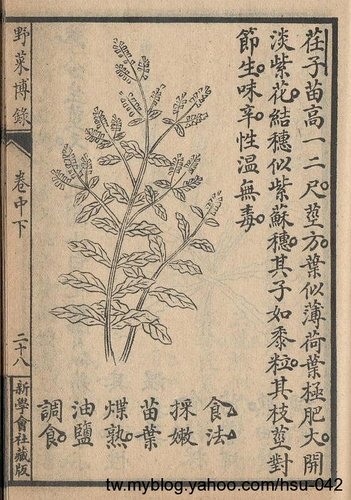 荏子苗高一二尺。莖方。葉似薄荷葉極肥大。開
淡紫花。結穗似紫蘇穗。其子如黍粒。其枝莖對
節生。味辛。性溫。無毒。
食法
採嫩
苗葉
煠熟。
油鹽
調食。
野菜博錄
卷中下
二十八
新學會社藏版
tw.myblog.yahoo.com/hsu-042